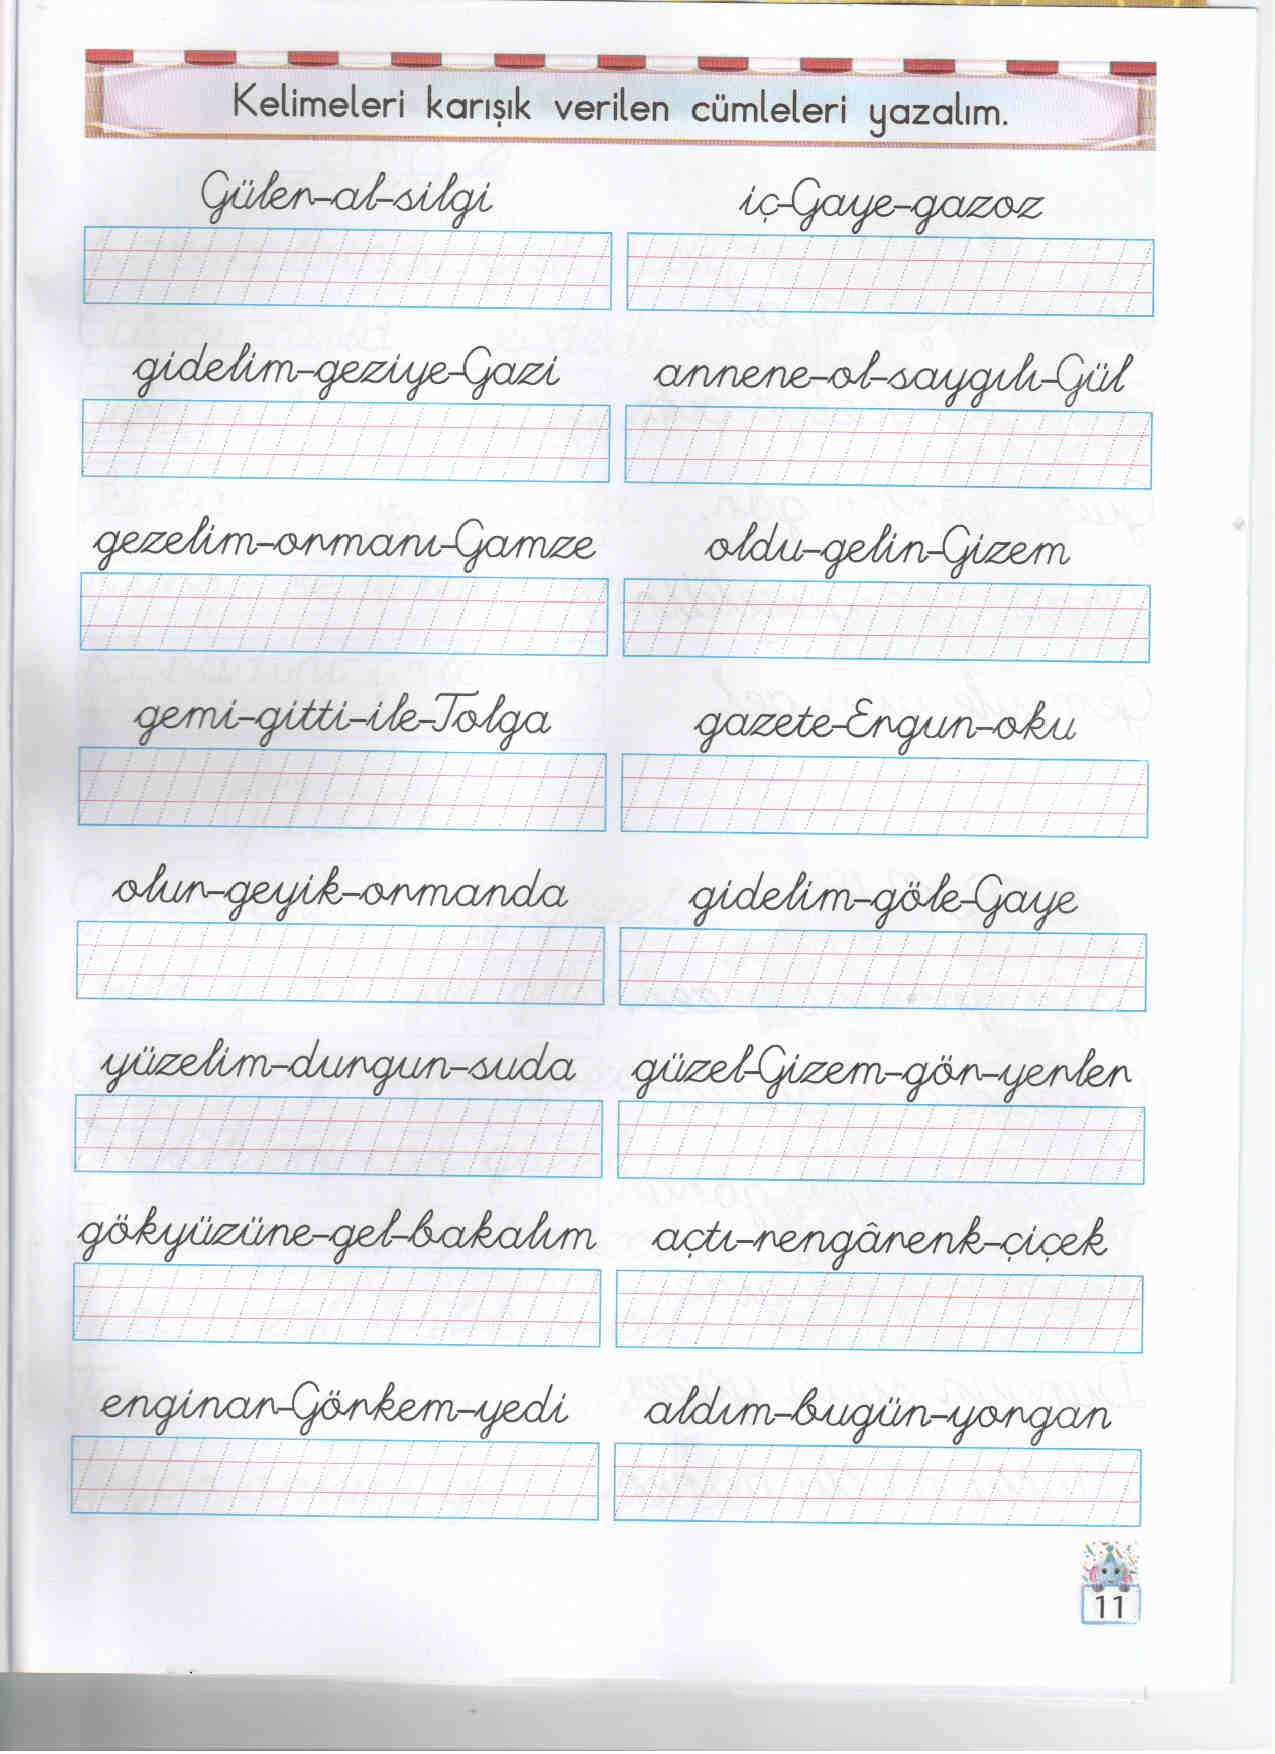 Kelimeleri karışık verilen cümleleri yazalım.
Gülen-al-silgi
iç-Gaye-gazoz
gidelim-geziye-Gazi
annene-ol-saygılı-Gül
gezelim-ormanı-Gamze
oldu-gelin-Gizem
gemi-gitti-ile-Tolga
gazete-Ergun-oku
olur-geyik-ormanda
gidelim-göle-Gaye
yüzelim-durgun-suda
güzel-Gizem-gör-yerler
gökyüzüne-gel-bakalım
açtı-rengârenk-çiçek
enginar-Görkem-yedi
aldım-bugün-yorgan
11